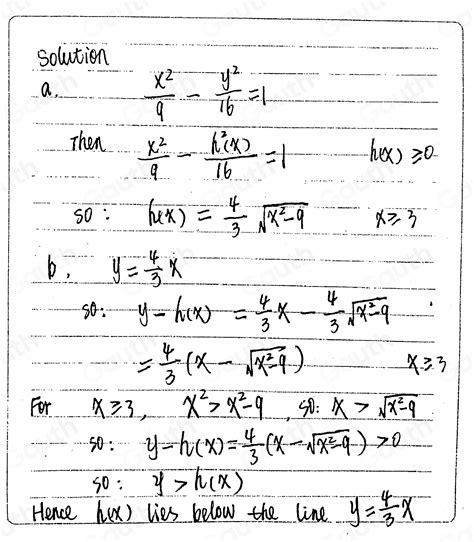 Solution
a. x²/9 - y²/16 = 1
Then x²/9 - h²(x)/16 = 1 h(x) ≥ 0
so: h(x) = 4/3 √(x²-9) x ≥ 3
b. y = 4/3 x
so: y - h(x) = 4/3 x - 4/3 √(x²-9)
= 4/3 (x - √(x²-9)) x ≥ 3
For x ≥ 3, x² > x²-9, so: x > √(x²-9)
so: y - h(x) = 4/3 (x - √(x²-9)) > 0
so: y > h(x)
Hence h(x) lies below the line y = 4/3 x